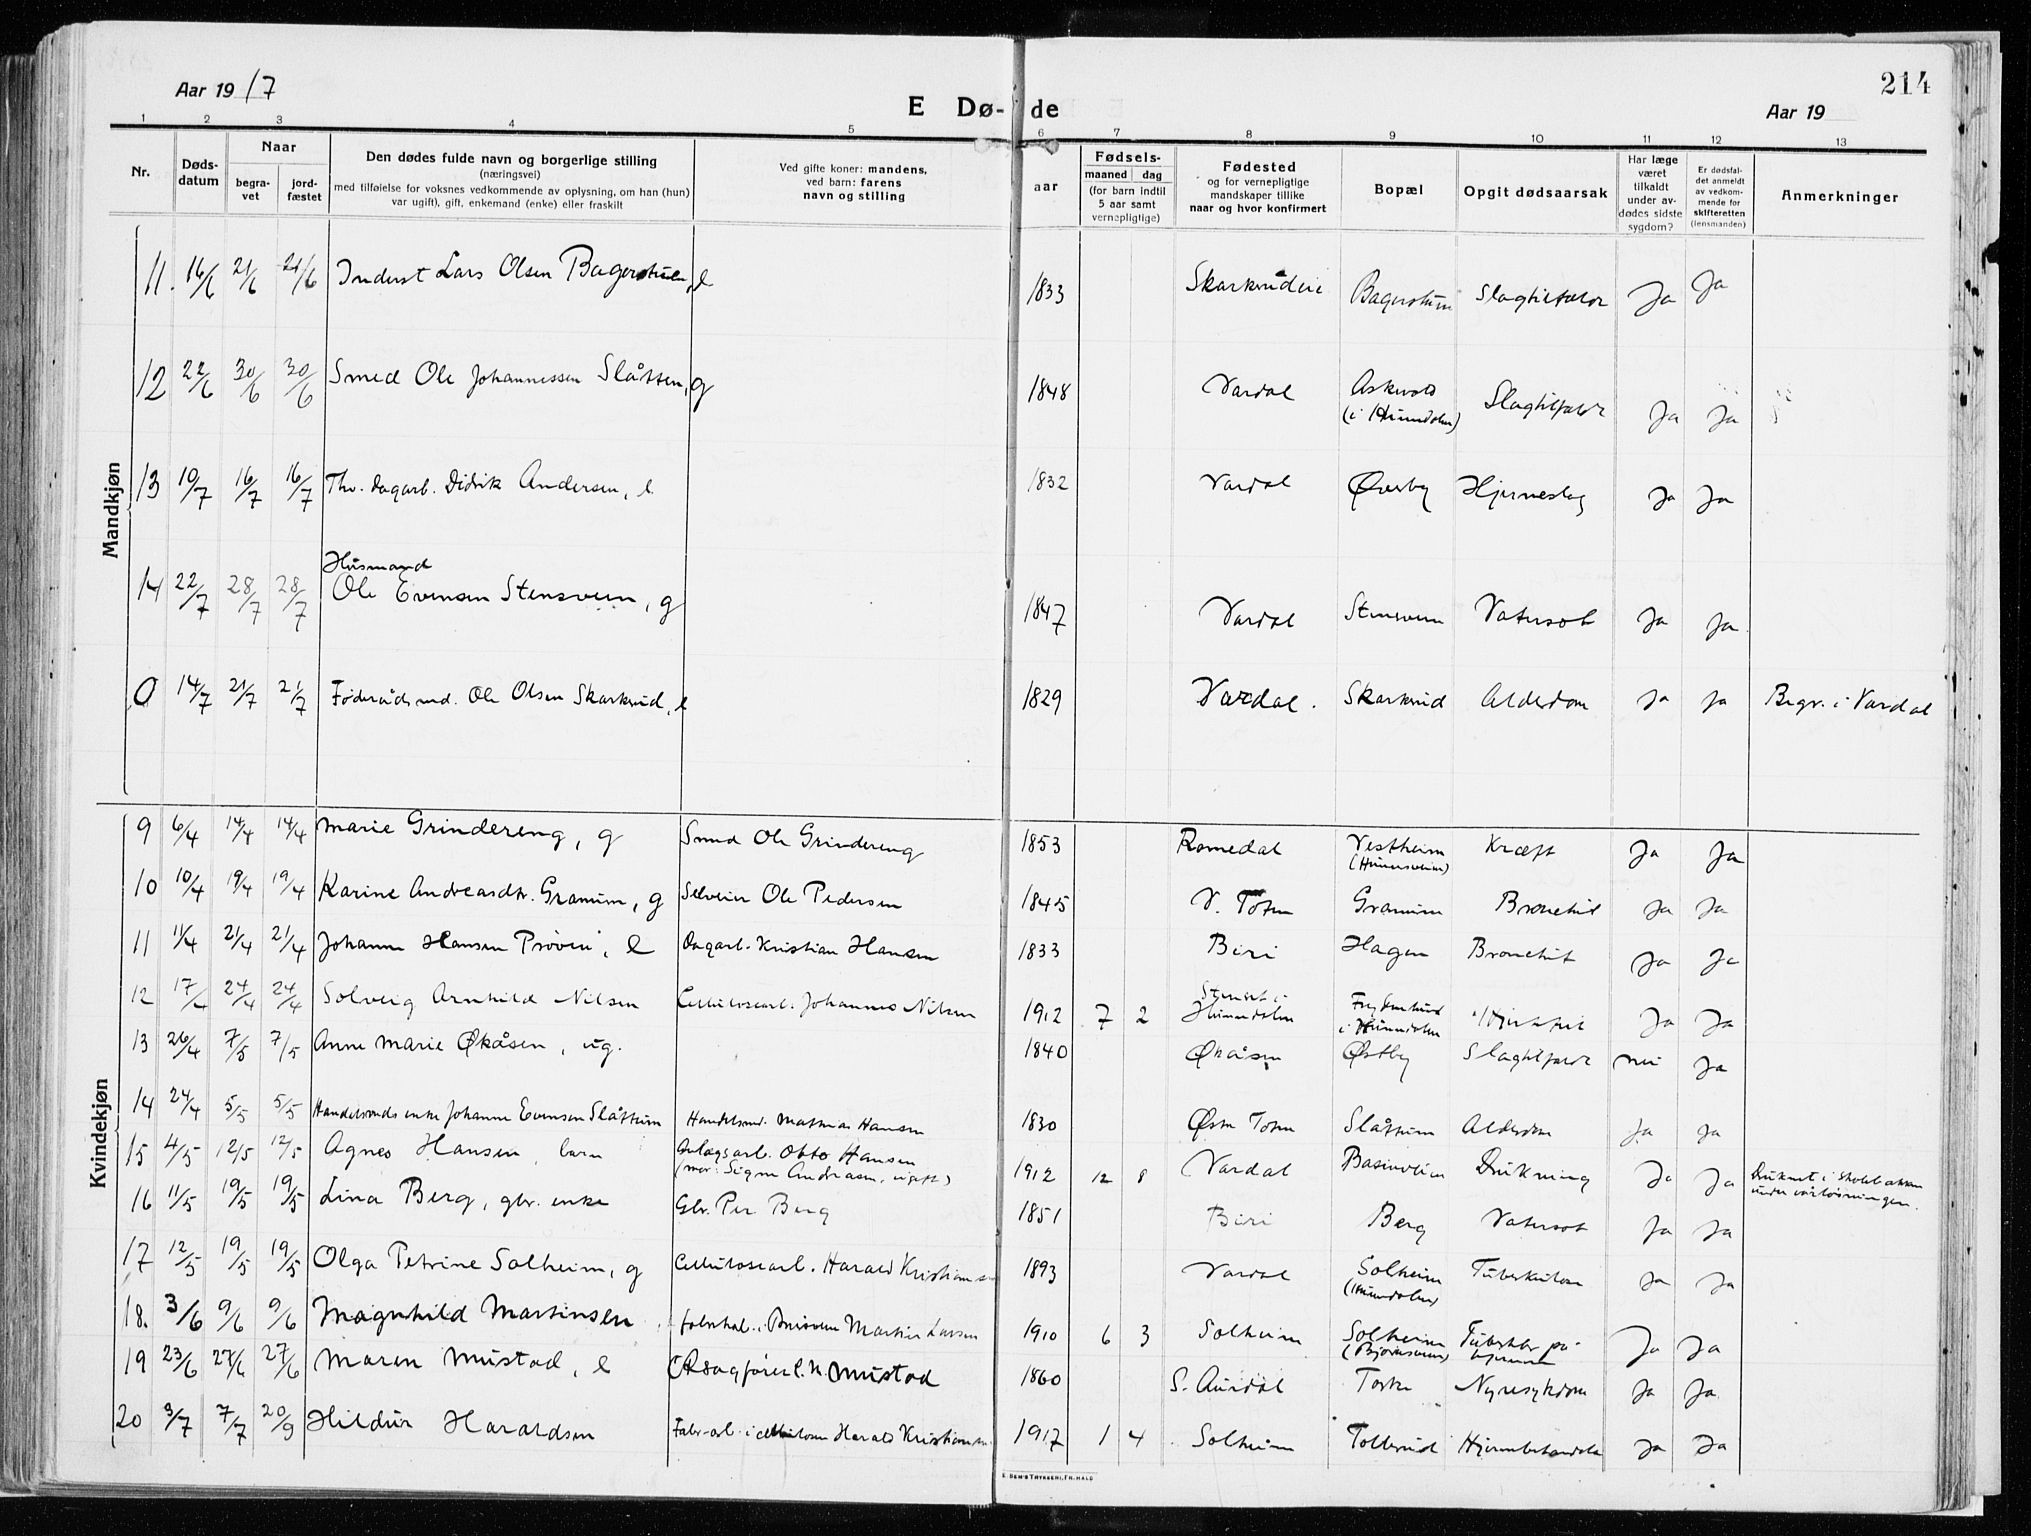 Aar 1917
E Dø- de
Aar 19
214
1 2 3 4 5 6 7 8 9 10 11 12 13
Nr.
Døds-
datum
Naar
begra-
vet
jord-
fæstet
Den dødes fulde navn og borgerlige stilling
(næringsvei)
med tilføielse for voksnes vedkommende av oplysning, om han (hun)
var ugift), gift, enkemand (enke) eller fraskilt
Ved gifte koner: mandens,
ved barn: farens
navn og stilling
aar
Fødsels-
maaned dag
(for barn indtil
5 aar samt
vernepligtige)
Fødested
og for vernepligtige
mandskaper tillike
naar og hvor konfirmert
Bopæl
Opgit dødsaarsak
Har læge
været
tilkaldt
under av-
dødes sidste
sygdom?
Er dødsfal-
det anmeldt
av vedkom-
mende for
skifteretten
(lensmanden)
Anmerkninger
Mandkjøn
11. 16/6 21/6 21/6 Inderst Lars Olsen Bagerstuen, e 1833 Skarkrudeie Bagerstuen Slagtilfælde Ja Ja
12 22/6 30/6 30/6 Smed Ole Johannessen Slåtten, g 1848 Vardal Askvold Slagtilfælde Ja Ja
(i Hunndalen)
13 10/7 16/7 16/7 Thv. dagarb. Didrik Andersen, e. 1832 Vardal Øverby Hjerneslag Ja Ja
Husmand
14 22/7 28/7 28/7 Ole Evensen Stensveen, g 1847 Vardal Stensveen Vatersot Ja Ja
0 14/7 21/7 21/7 Føderådsmd. Ole Olsen Skarkrud, e 1829 Vardal. Skarkrud Alderdom Ja Ja Begr. i Vardal
Kvindekjøn
9 6/4 14/4 14/4 Marie Grindereng, g Smed Ole Grindereng 1853 Romedal Vestheim Kræft Ja Ja
10 10/4 19/4 19/4 Karine Andreasdtr. Granum, g Selveier Ole Pedersen 1845 V. Toten Granum Bronchit Ja Ja
11 11/4 21/4 21/4 Johanne Hansen Prøven, e Dagarb. Kristian Hansen 1833 Biri Hagen Bronchit Ja Ja
12 17/4 24/4 24/4 Solveig Arnhild Nilsen Cellulosearb. Johannes Nilsen 1912 7 2 Hunndalen i Hunndalen Ja Ja
13 26/4 7/5 7/5 Anne Marie Økåsen, ug. 1840 Økåsen Østby Slagtilfælde nei Ja
14 24/4 5/5 5/5 Handelsmds enke Johanne Evensen Slåttum Handelsmd. Mathias Hansen 1830 Østre Toten Slåttum Alderdom Ja Ja
15 4/5 12/5 12/5 Agnes Hansen, barn Anlægsarb. Otto Hansen 1912 12 8 Vardal Drukning Ja Ja Druknet i Skolebakken
(mor: Signe Andreasen, ugift) under vårløsningen.
16 11/5 19/5 19/5 Lina Berg, gbr. enke Gbr. Per Berg 1851 Biri Berg Vatersot Ja Ja
17 12/5 19/5 19/5 Olga Petrine Solheim, g Cellulosearb. Harald Kristiansen 1893 Vardal Solheim Tuberkulose Ja Ja
(Hunndalen)
18. 3/6 9/6 9/6 Magnhild Martinsen Martin Larsen 1910 6 3 Solheim Solheim Ja Ja
19 23/6 27/6 27/6 Maren Mustad, e O.r.sagfører C. N. Mustad 1860 S. Aurdal Toske Nyresykdom Ja Ja
20 3/7 7/7 20/9 Hildur Haraldsen Fabr-arb. i cellulosen Harald Kristiansen 1917 1 4 Solheim Tollerud Ja Ja